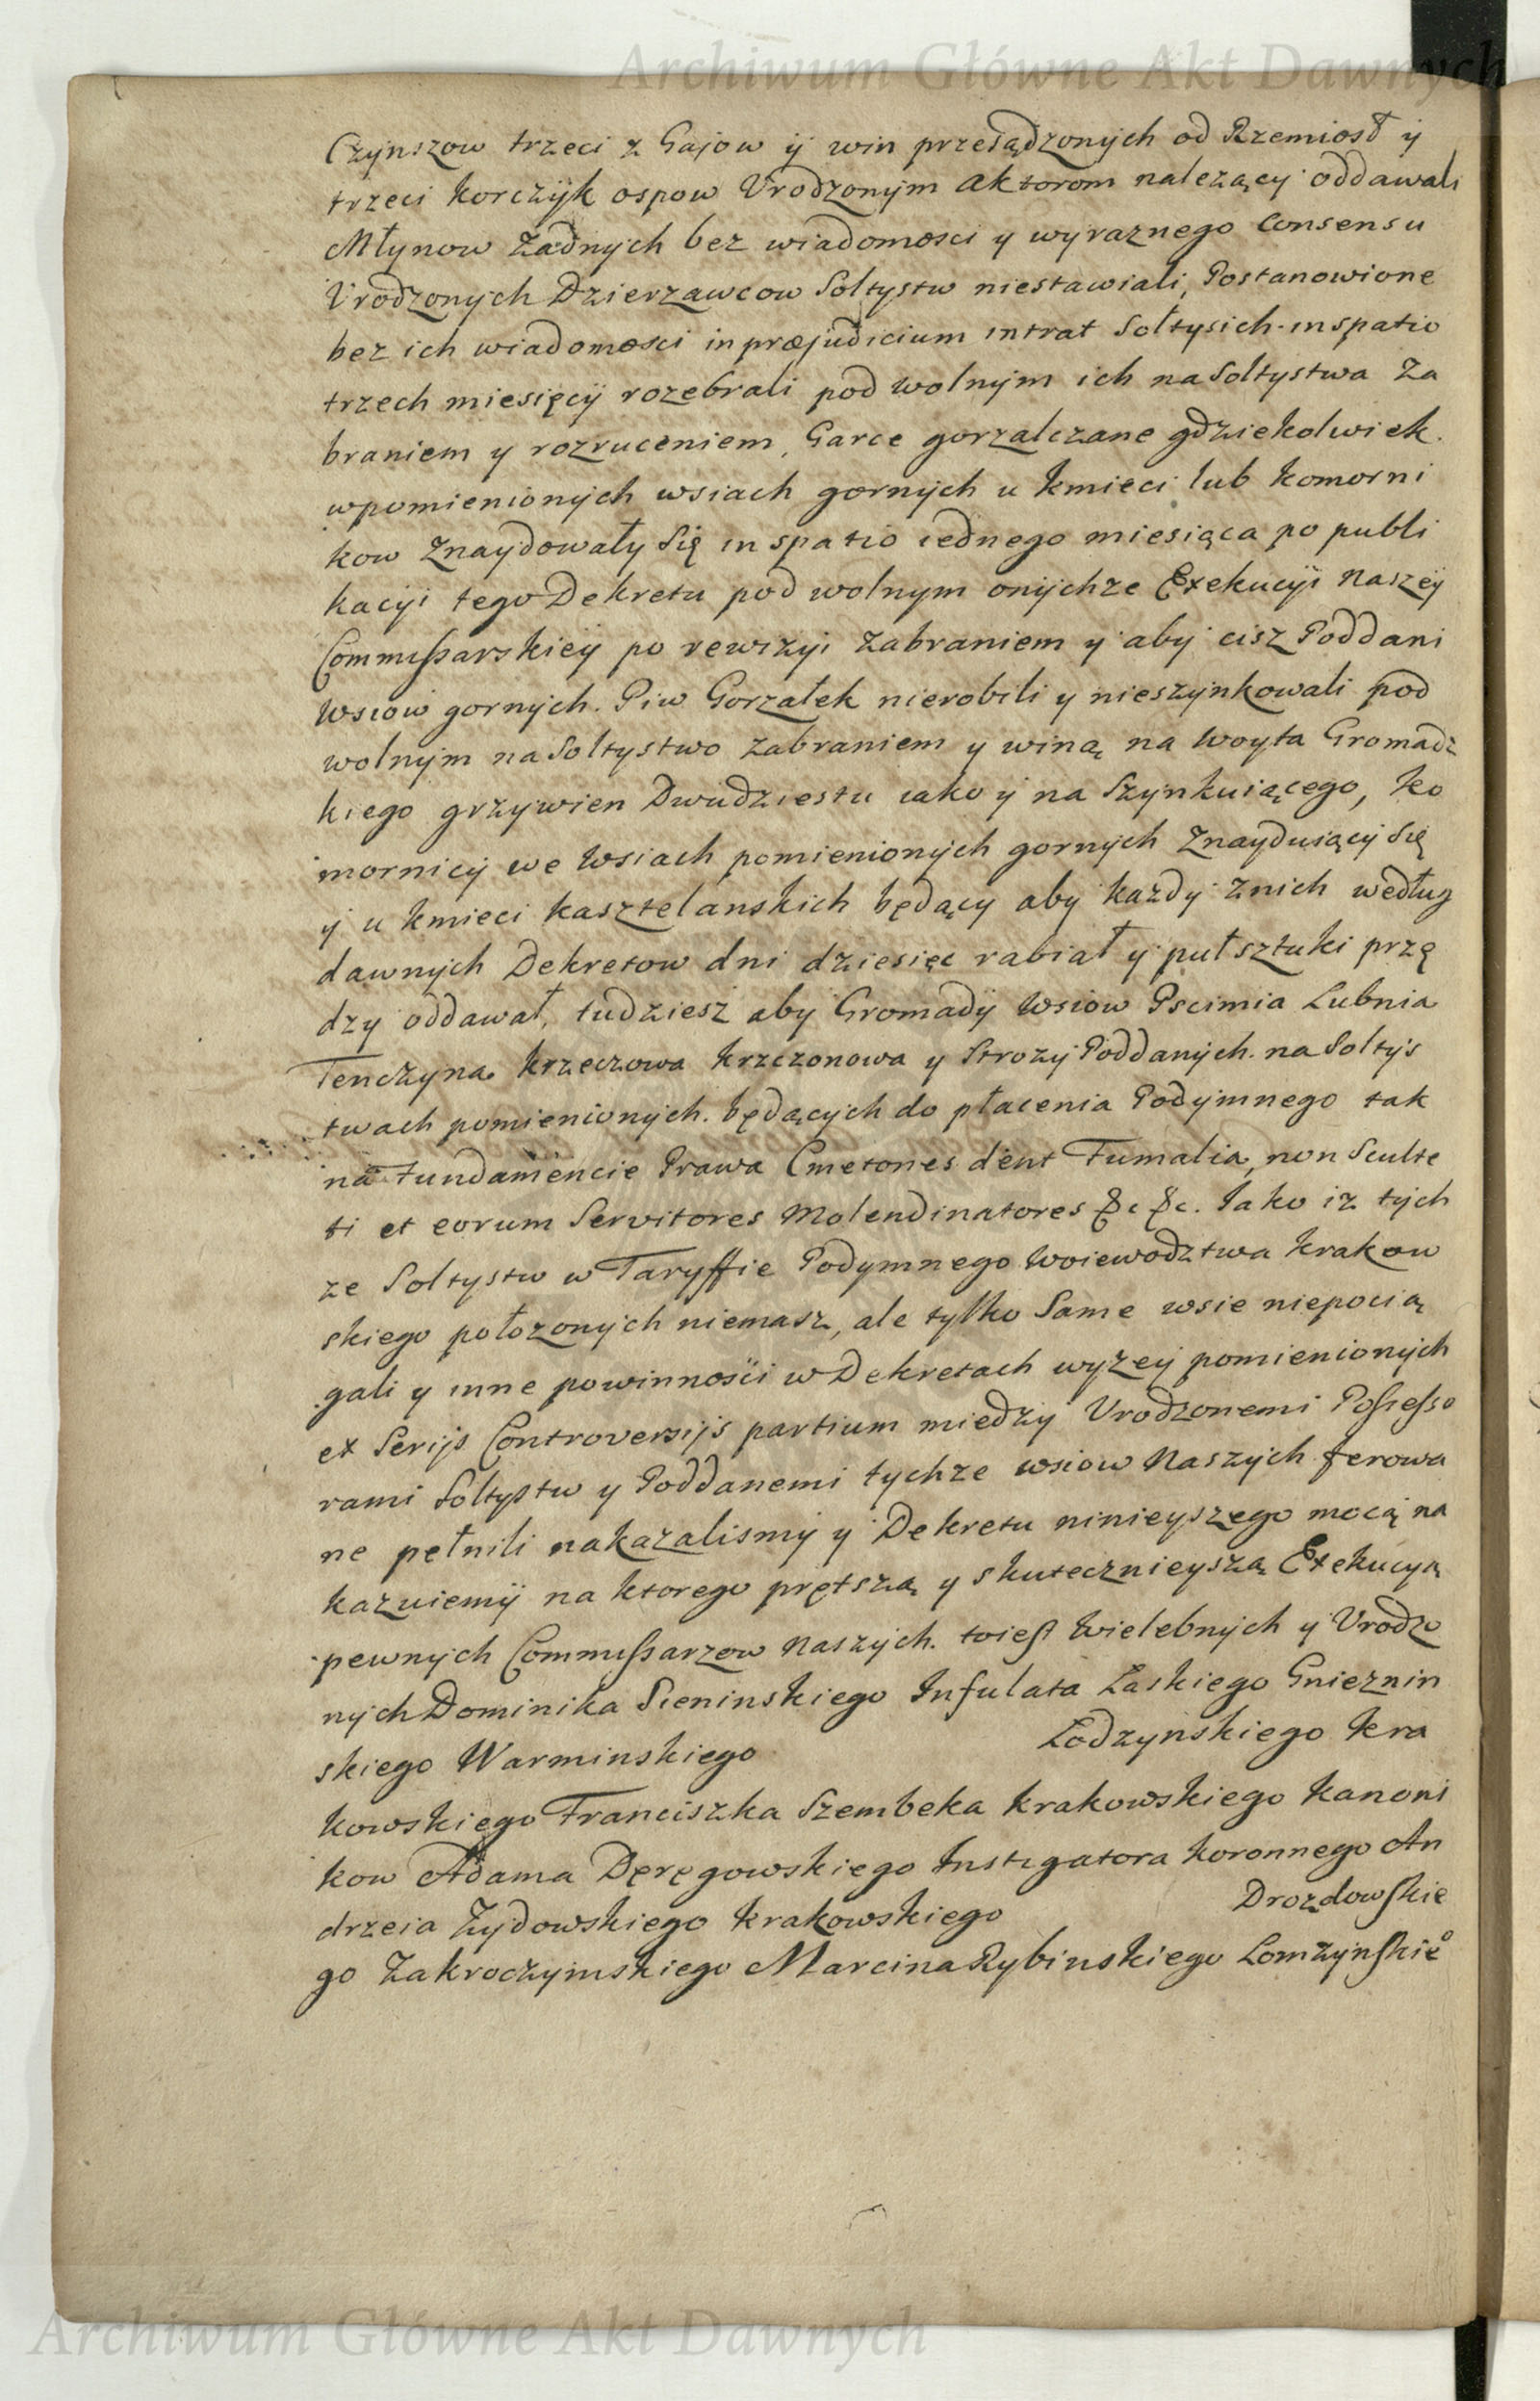 Archiwum Główne Akt Dawnych
Czÿnszow trzeci z Gajow ÿ win przesądzonÿch od Rzemiosł ÿ
trzeci korczÿk ospow Vrodzonÿm aktorom należący oddawali
Młynow żadnÿch bez wiadomosci y wyraznego Consensu
Vrodzonÿch Dzierzawcow Soltystw niestawiali, Postanowione
bez ich wiadomosci in præjudicium intrat Sołtysich in spatio
trzech miesięcÿ rozebrali pod wolnÿm ich na Soltystwa Za
braniem y rozruceniem, Garce gorzalczane gdziekolwiek
wpomienionÿch wsiach gornÿch u kmieci lub komorni
kow Znaydowały Się in spatio iednego miesiąca po publi
kacÿi tego Dekretu pod wolnym onÿchze Exekucÿi Naszeÿ
Commissarskieÿ po rewizÿi Zabraniem y abÿ cisz Poddani
Wsiow gornÿch. Piw Gorzałek nierobili y nieszÿnkowali pod
wolnÿm na Soltystwo Zabraniem y winą na Woyta Gromadz
kiego grzywien Dwudziestu iako ÿ na Szÿnkuiącego, ko
mornicÿ we Wsiach pomienionÿch gornÿch Znayduiącÿ Się
ÿ u kmieci kasztelanskich będący abÿ każdÿ Znich według
dawnych Dekretow dni dziesięc rabiał ÿ puł sztuki przę
dzy oddawał, tudziesz abÿ Gromadÿ Wsiow Pscimia Lubnia
Tenczyna krzeczowa krzczonowa y Strozÿ Poddanÿch na Soltÿs
twach pomienionÿch będącÿch do płacenia Podymnego tak
na fundamencie Prawa Cmetones dent Fumalia, non Sculte
ti et eorum Servitores Molendinatores &c &c. Iako iz tÿch
ze Soltystw w Taryffie Podymnego Woiewodztwa krakow
skiego położonÿch niemasz, ale tylko Same wsie niepocią
gali y inne powinnosci w Dekretach wyzeÿ pomienionÿch
ex Serÿs Controversÿs partium miedzÿ Vrodzonemi Possesso
rami Soltystw y Poddanemi tÿchze wsiow Naszÿch ferowa
ne pełnili nakazalismÿ ÿ Dekretu ninieyszego mocą na
kazuiemÿ na ktorego prętszą y skutecznieyszą Exekucyą
pewnÿch Commissarzow Naszÿch. toiest Wielebnÿch ÿ Vrodzo
nÿch Dominika Sieninskiego Infulata Łaskiego Gnieznin
skiego Warminskiego Łodzynskiego kra
kowskiego Franciszka Szembeka krakowskiego kanoni
kow Adama Dęręgowskiego Instigatora koronnego An
drzeia Zÿdowskiego krakowskiego Drozdowskie
go Zakroczymskiego Marcina Rybinskiego Lomzynskieº
Archiwum Główne Akt Dawnych